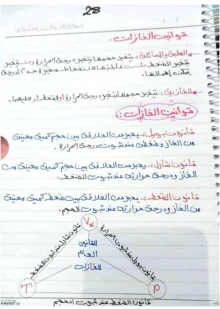 28
قوانين الغازات.
الصلبة والسائلة:- يتغير حجمها بتغير درجة الحرارة
يمكن إهمالها.
الغازية:- يتغير حجمها بتغير درجة الحرارة والضغط
قوانين الغازات:
قانون بويل:- يعبر عن العلاقة بين حجم كمية معينة
من الغاز وضغطه عند ثبوت درجة الحرارة.
قانون شارل:- يعبر عن العلاقة بين حجم كمية معينة
من الغاز ودرجة حرارته عند ثبوت الضغط.
قانون الضغط:- يعبر عن العلاقة بين ضغط كمية معينة
من الغاز ودرجة حرارته عند ثبوت الحجم.
V
القانون
العام
للغازات
T
P
قانون الضغط عند ثبوت الحجم